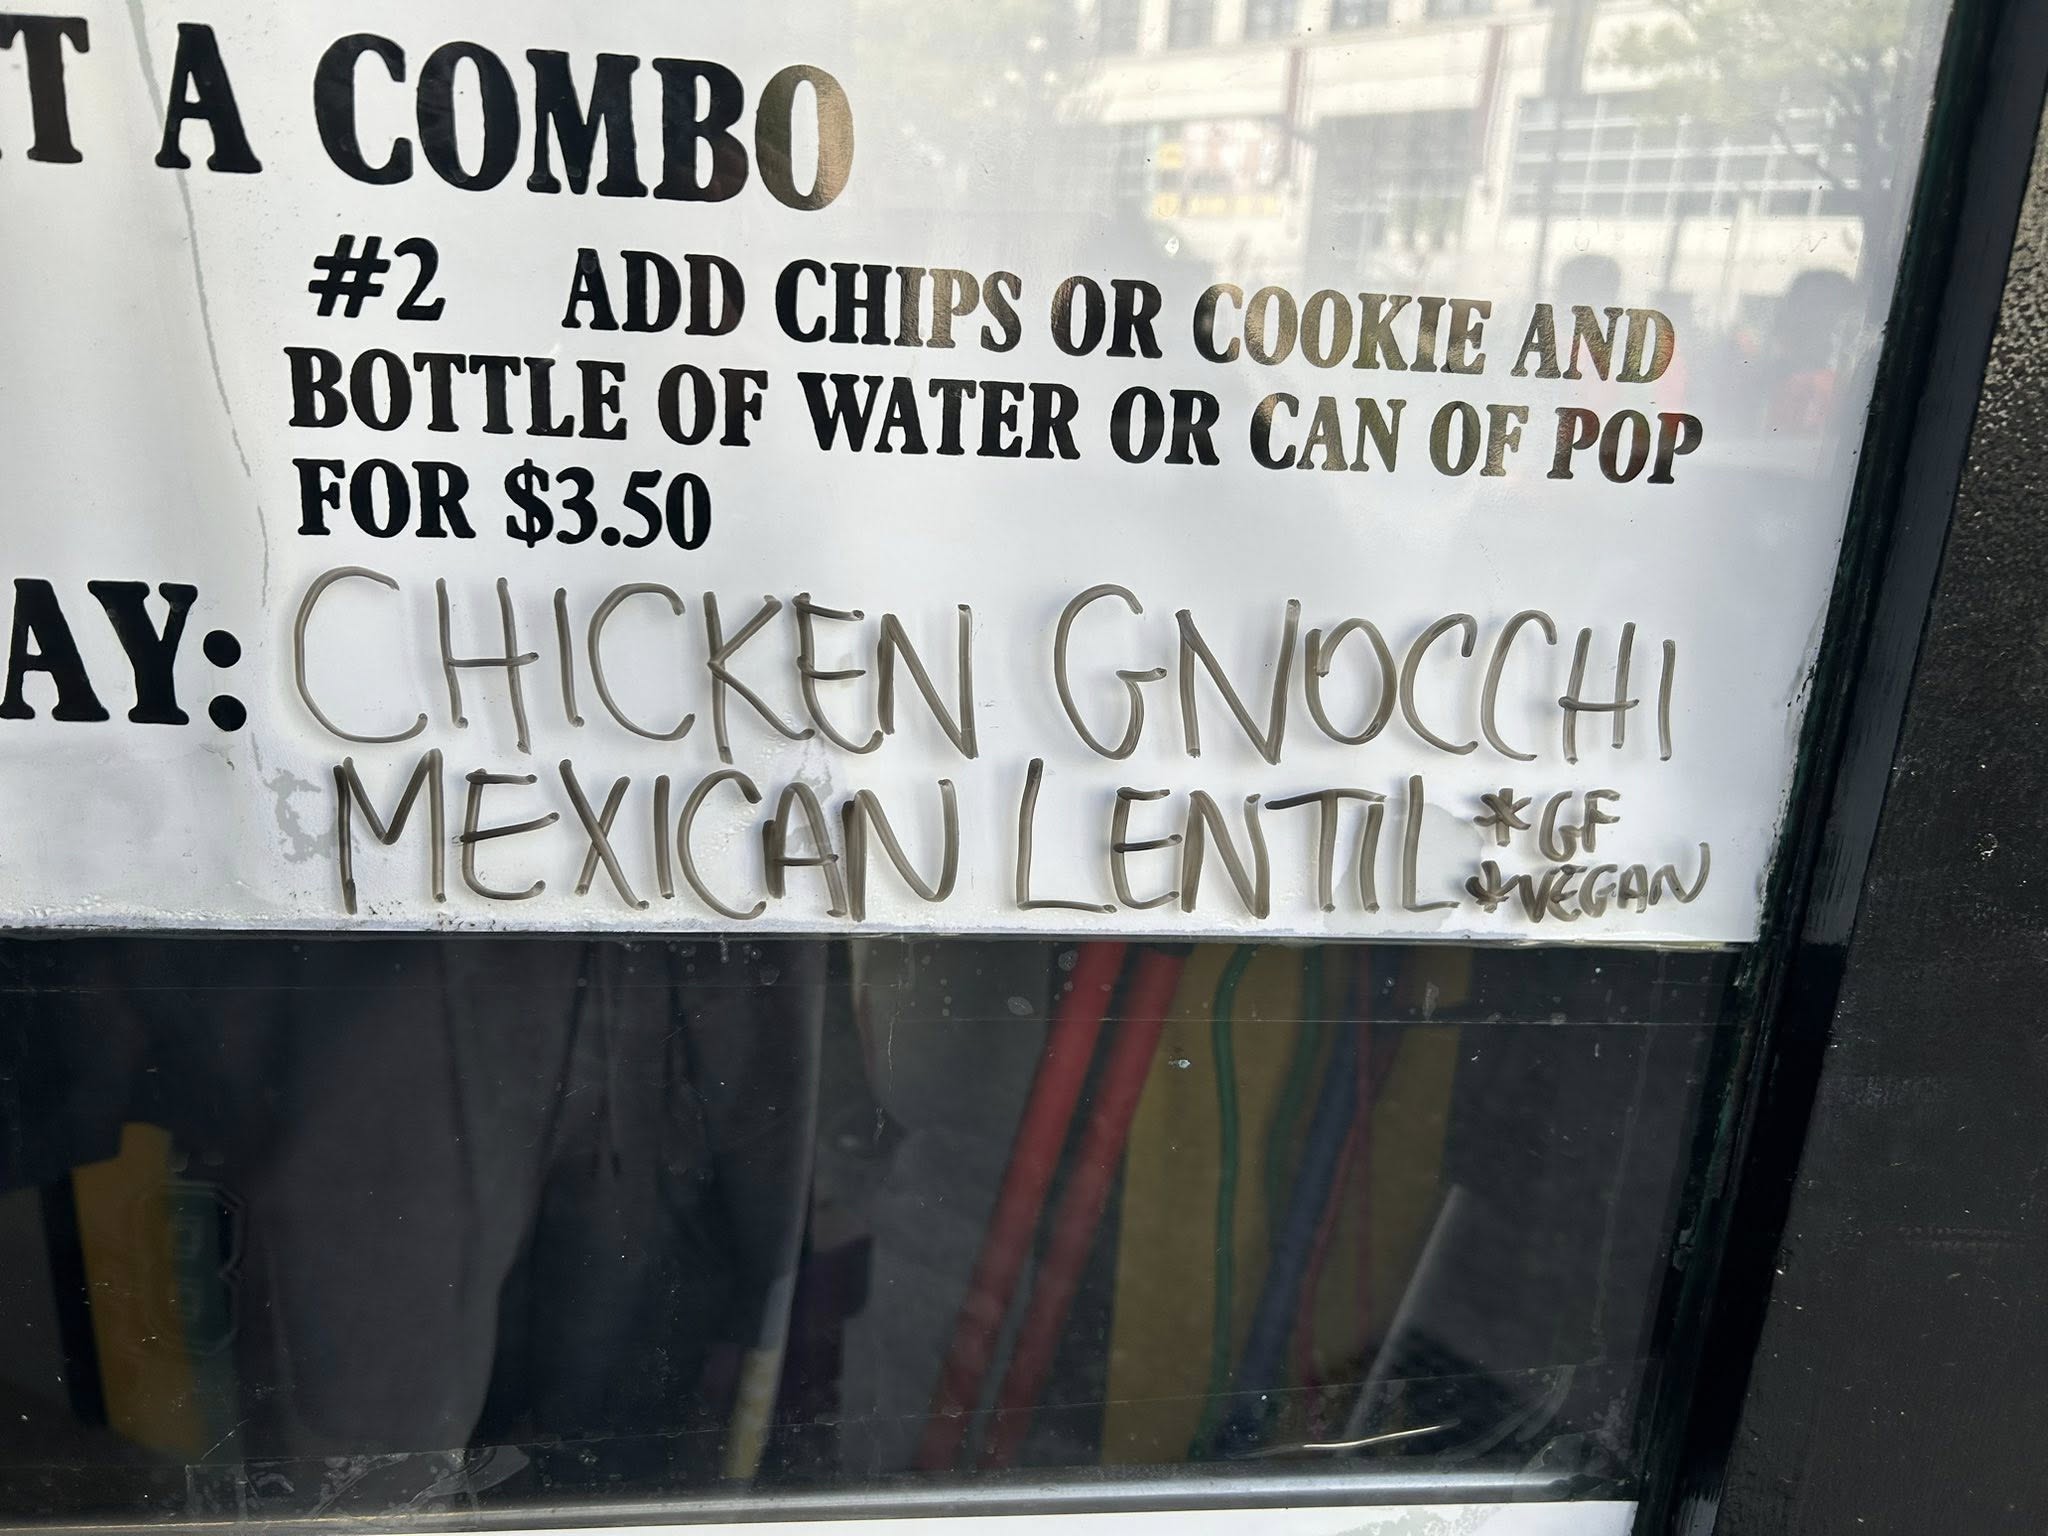 T A COMBO
#2 ADD CHIPS OR COOKIE AND
BOTTLE OF WATER OR CAN OF POP
FOR $3.50
AY: CHICKEN GNOCCHI
MEXICAN LENTIL *GF
*VEGAN